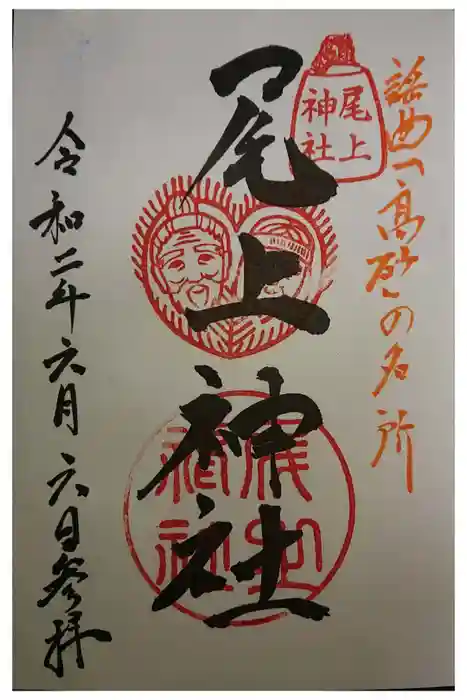 謡曲「高砂」の名所
尾上
神社
尾上神社
尾上
神社
令和二年六月六日参拝